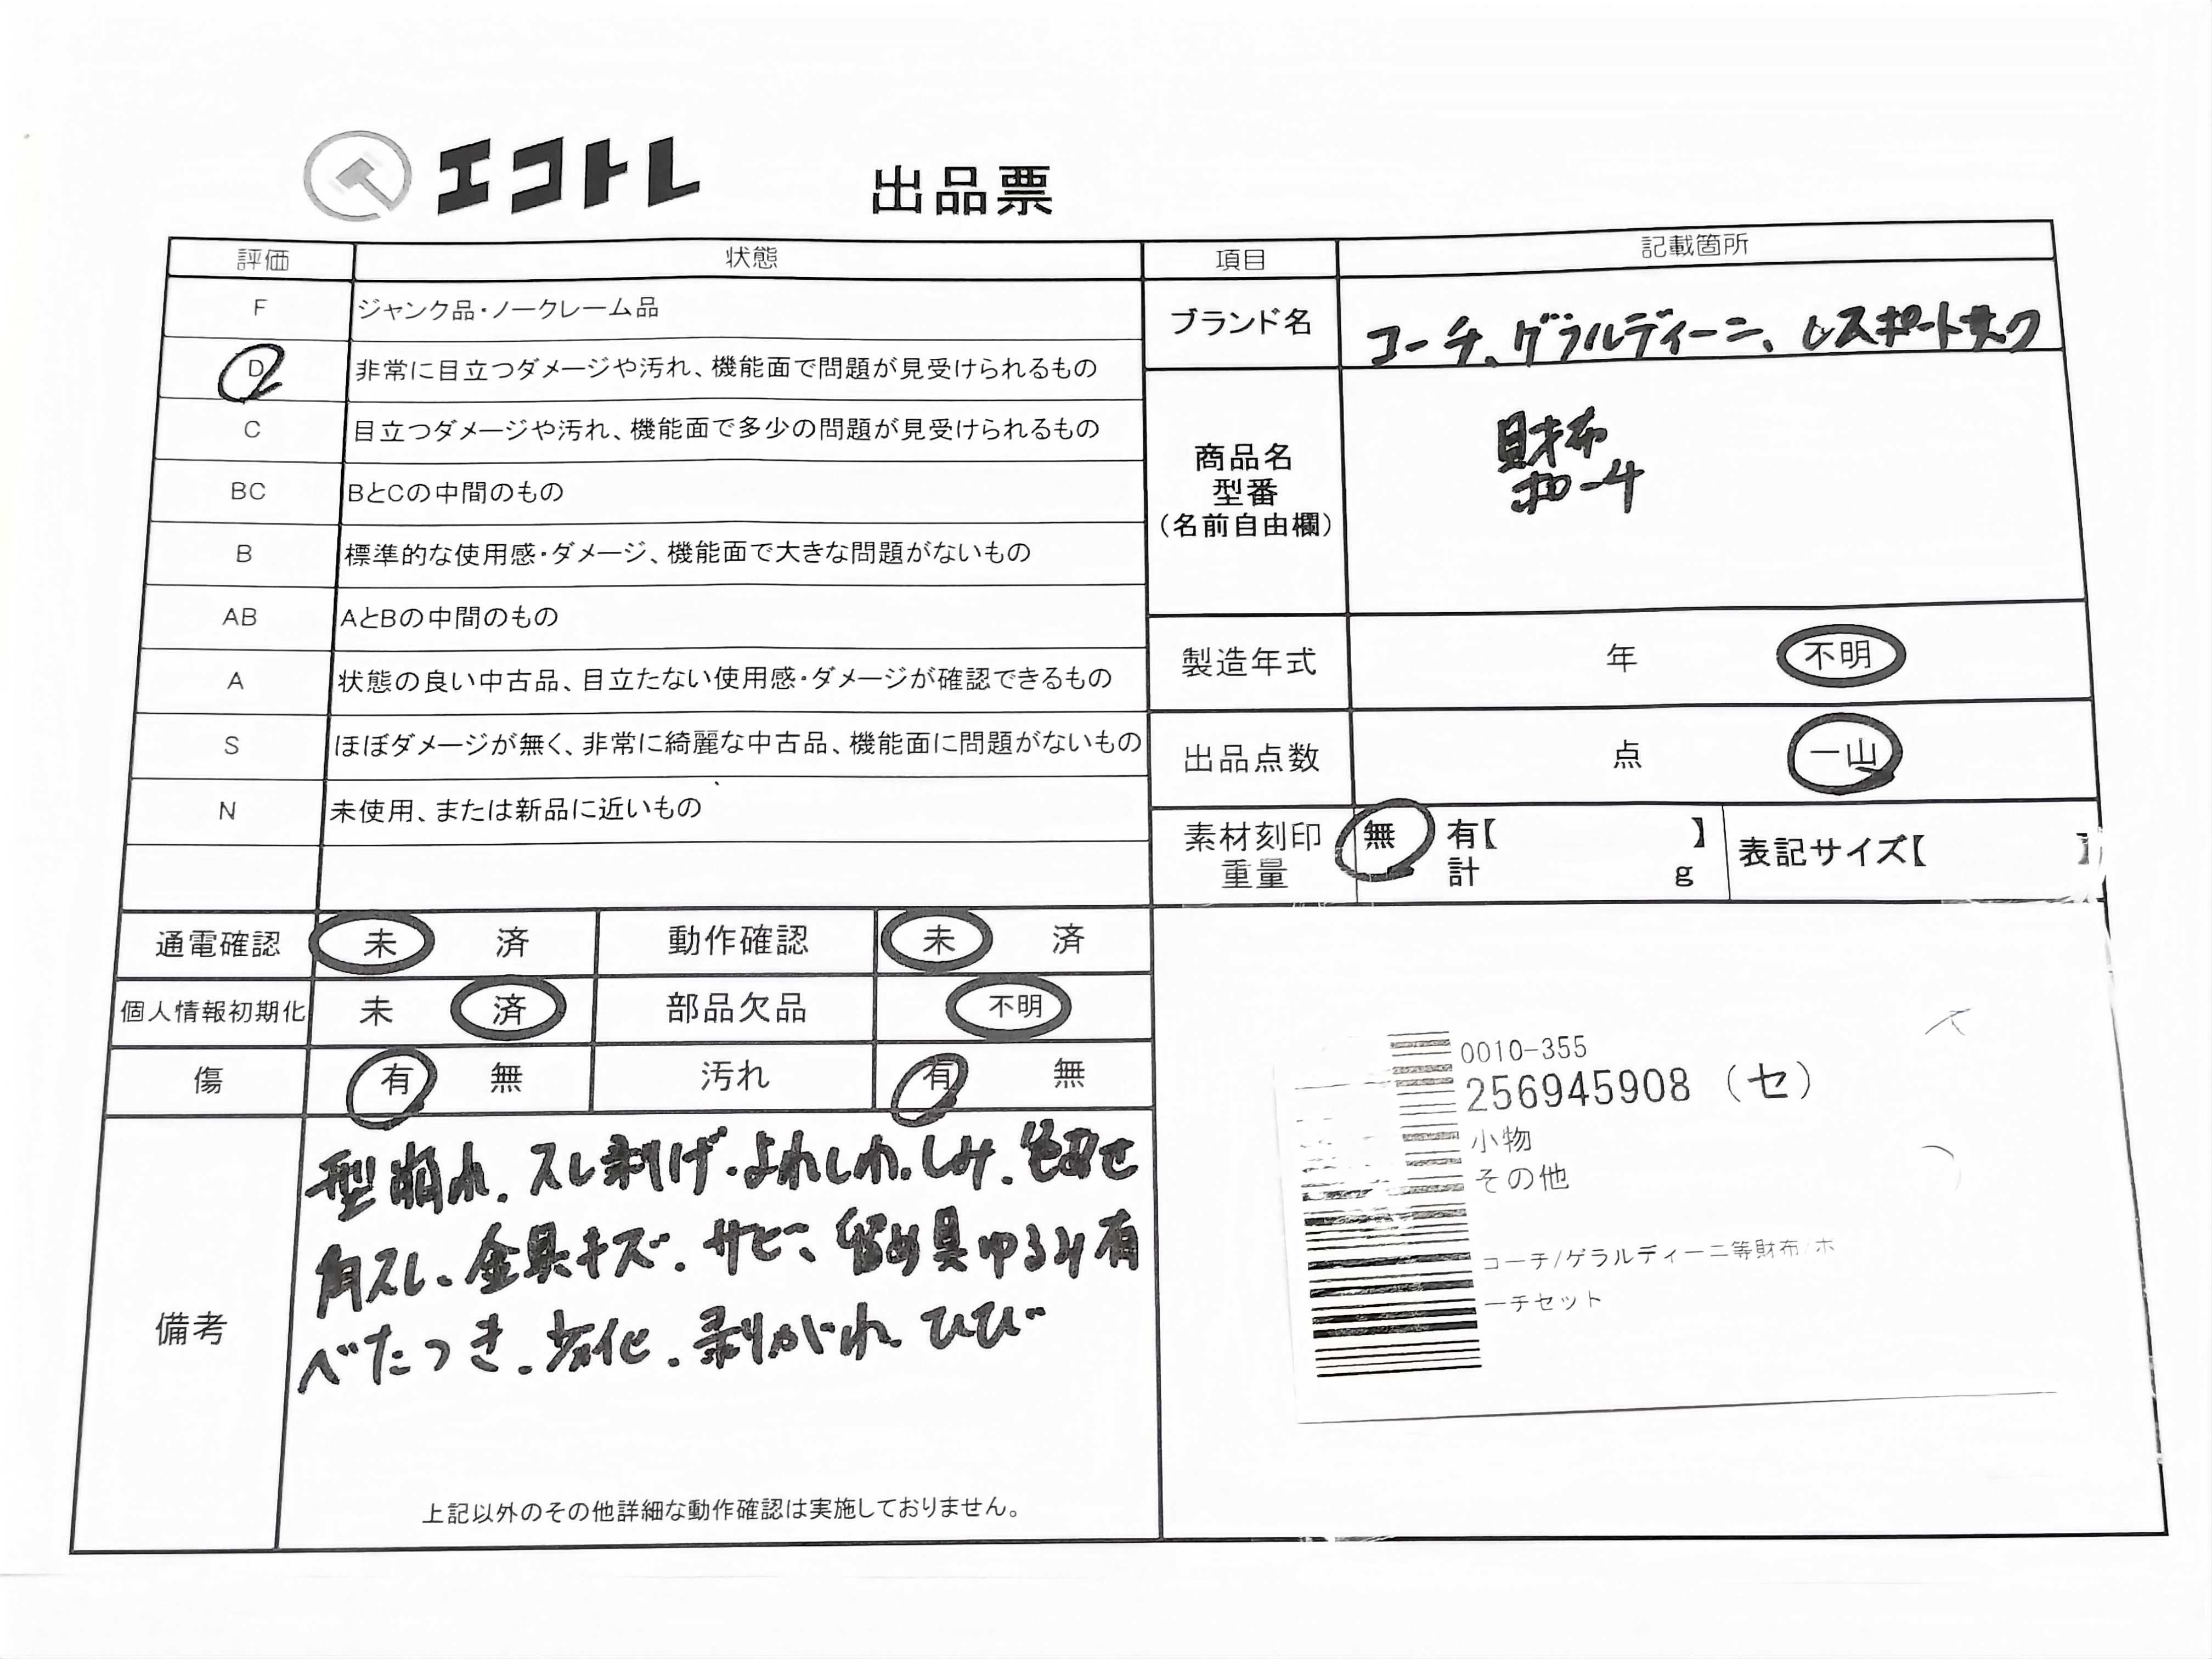 エコトレ 出品票
評価 状態 項目 記載箇所
F ジャンク品・ノークレーム品
D 非常に目立つダメージや汚れ、機能面で問題が見受けられるもの
C 目立つダメージや汚れ、機能面で多少の問題が見受けられるもの
BC BとCの中間のもの
B 標準的な使用感・ダメージ、機能面で大きな問題がないもの
AB AとBの中間のもの
A 状態の良い中古品、目立たない使用感・ダメージが確認できるもの
S ほぼダメージが無く、非常に綺麗な中古品、機能面に問題がないもの
N 未使用、または新品に近いもの
ブランド名 コーチ、ゲラルディーニ、レスポートサック
商品名
型番
(名前自由欄)
財布
ポーチ
製造年式 年 不明
出品点数 点 一山
素材刻印 無 有【 】 表記サイズ【 】
重量 計 g
通電確認 未 済 動作確認 未 済
個人情報初期化 未 済 部品欠品 不明
傷 有 無 汚れ 有 無
備考
型崩れ、スレ剥げ、よれしわ、しみ、色褪せ
角スレ、金具キズ、サビ、留め具ゆるみ有
べたつき、劣化、剥がれ、ひび
上記以外のその他詳細な動作確認は実施しておりません。
0010-355
256945908 (セ)
小物
その他
コーチ/ゲラルディーニ等財布/ポ
ーチセット